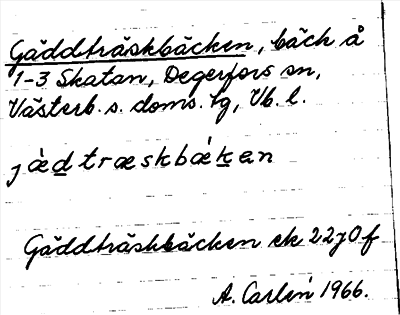 Gäddträskbäcken, bäck å
1-3 Skatan, Degerfors sn,
Västerb. s. doms. tg, Vb. l.
jæ̀d̲træskbǽk̲ən
Gäddträskbäcken ek 22J0f
A. Carlén 1966.